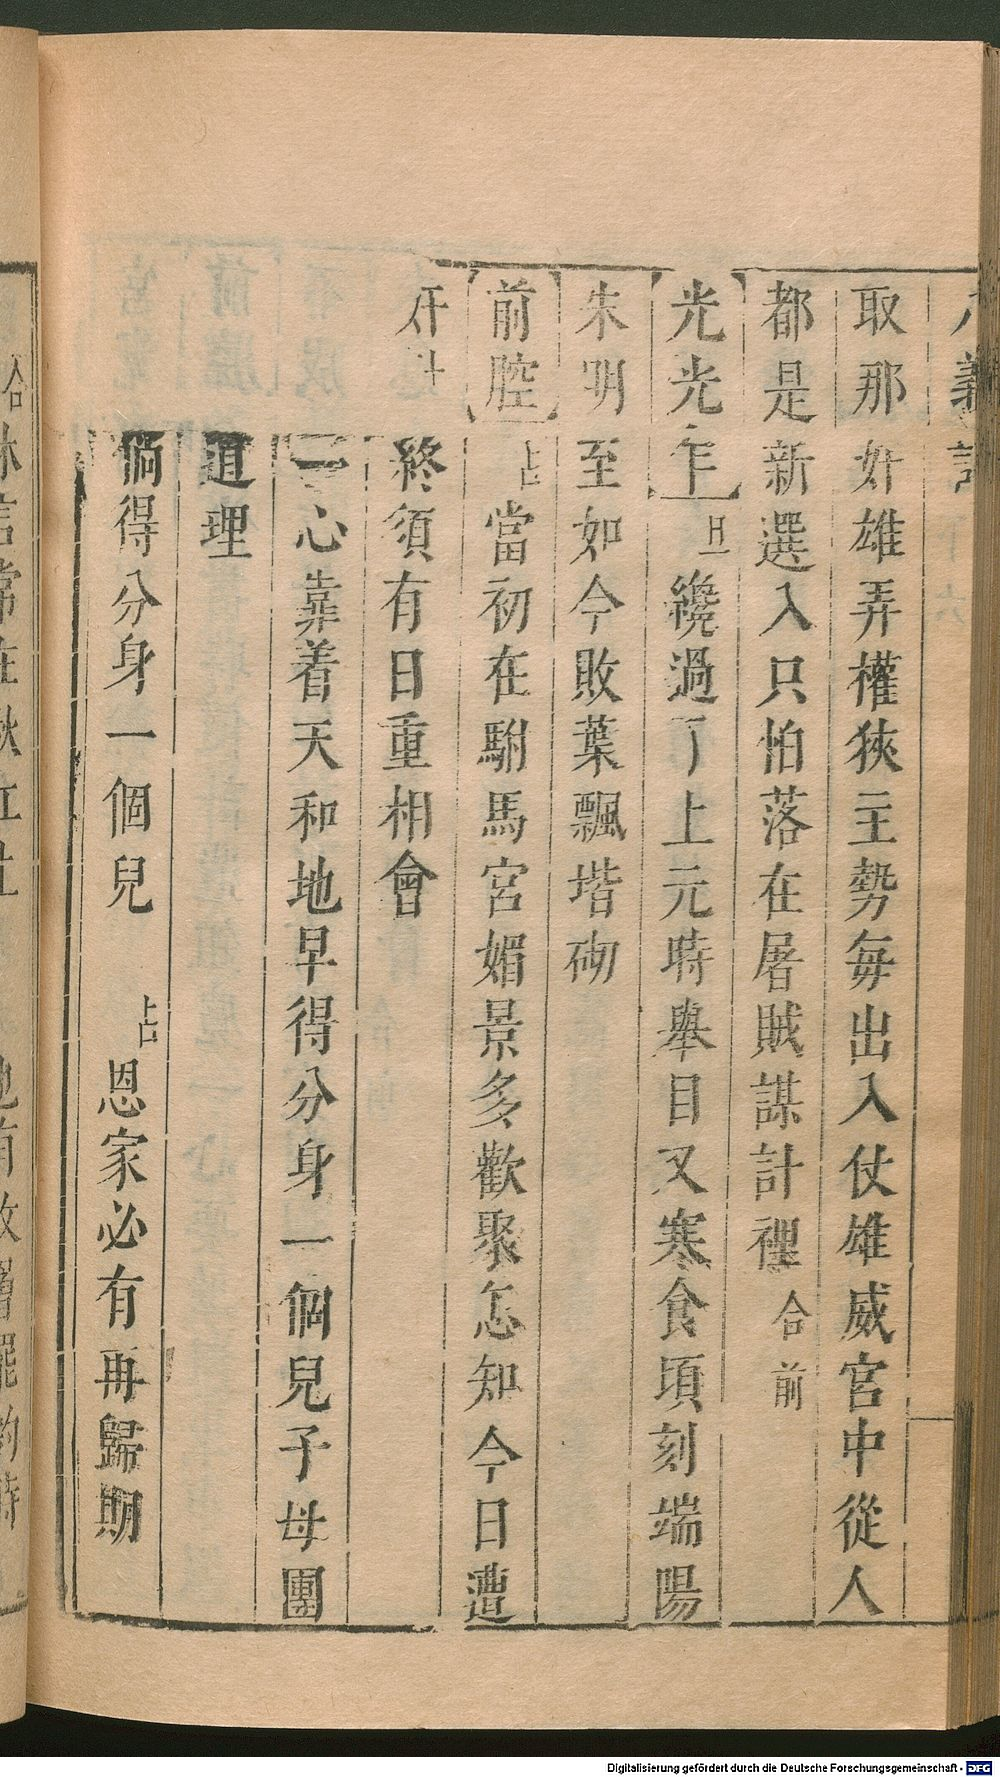 取那奸雄弄權狹主勢每出入仗雄威宮中從人
都是新選入只怕落在屠賊謀計裡合前
光光乍旦纔過了上元時舉目又寒食頃刻端陽
朱明至如今敗葉飄堦砌
前腔占當初在駙馬宮媚景多歡聚怎知今日遭
終須有日重相會
一心靠着天和地早得分身一個兒子母團
道理
倘得分身一個兒 占恩家必有再歸期
Digitalisierung gefördert durch die Deutsche Forschungsgemeinschaft - DFG